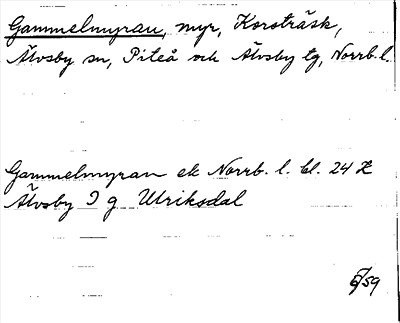 Gammelmyran, myr, Korsträsk,
Älvsby sn, Piteå och Älvsby tg, Norrb. l.
Gammelmyran ek Norrb. l. bl. 24 Z
Älvsby I g Ulriksdal
/59